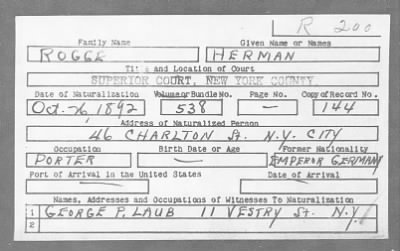 R 200
Family Name Given Name or Names
ROGGE HERMAN
Title and Location of Court
SUPERIOR COURT, NEW YORK COUNTY
Date of Naturalization Volume or Bundle No. Page No. Copy of Record No.
Oct. 26, 1892 538 — 144
Address of Naturalized Person
46 CHARLTON St. N.Y. CITY
Occupation Birth Date or Age Former Nationality
PORTER — EMPEROR GERMANY
Port of Arrival in the United States Date of Arrival
— —
Names, Addresses and Occupations of Witnesses To Naturalization
1 GEORGE P. LAUB 11 VESTRY St. N.Y.
2